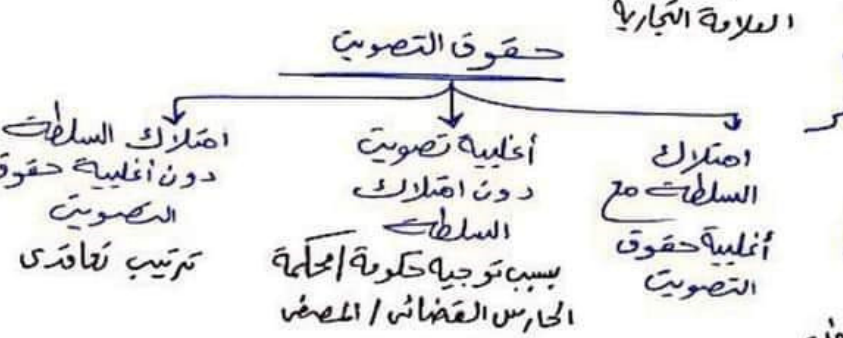 العلامة التجارية
حقوق التصويت
امتلاك
السلطة مع
أغلبية حقوق
التصويت
أغلبية تصويت
دون امتلاك
السلطة
بسبب توجيه حكومة / محكمة
الحارس القضائى / المصفى
امتلاك السلطة
دون أغلبية حقوق
التصويت
ترتيب تعاقدى